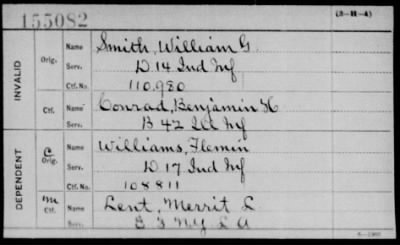 155082
(3-H-4)
INVALID
Orig.
Name Smith, William G.
Serv. D 14 Ind Inf
Ctf. No. 110,980
Ctf.
Name Conrad, Benjamin H
Serv. B 42 Ill Inf
DEPENDENT
C
Orig.
Name Williams, Flemin
Serv. D 17 Ind Inf
Ctf. No. 108811
m
Ctf.
Name Lent, Merrit L
Serv. N.Y. L A